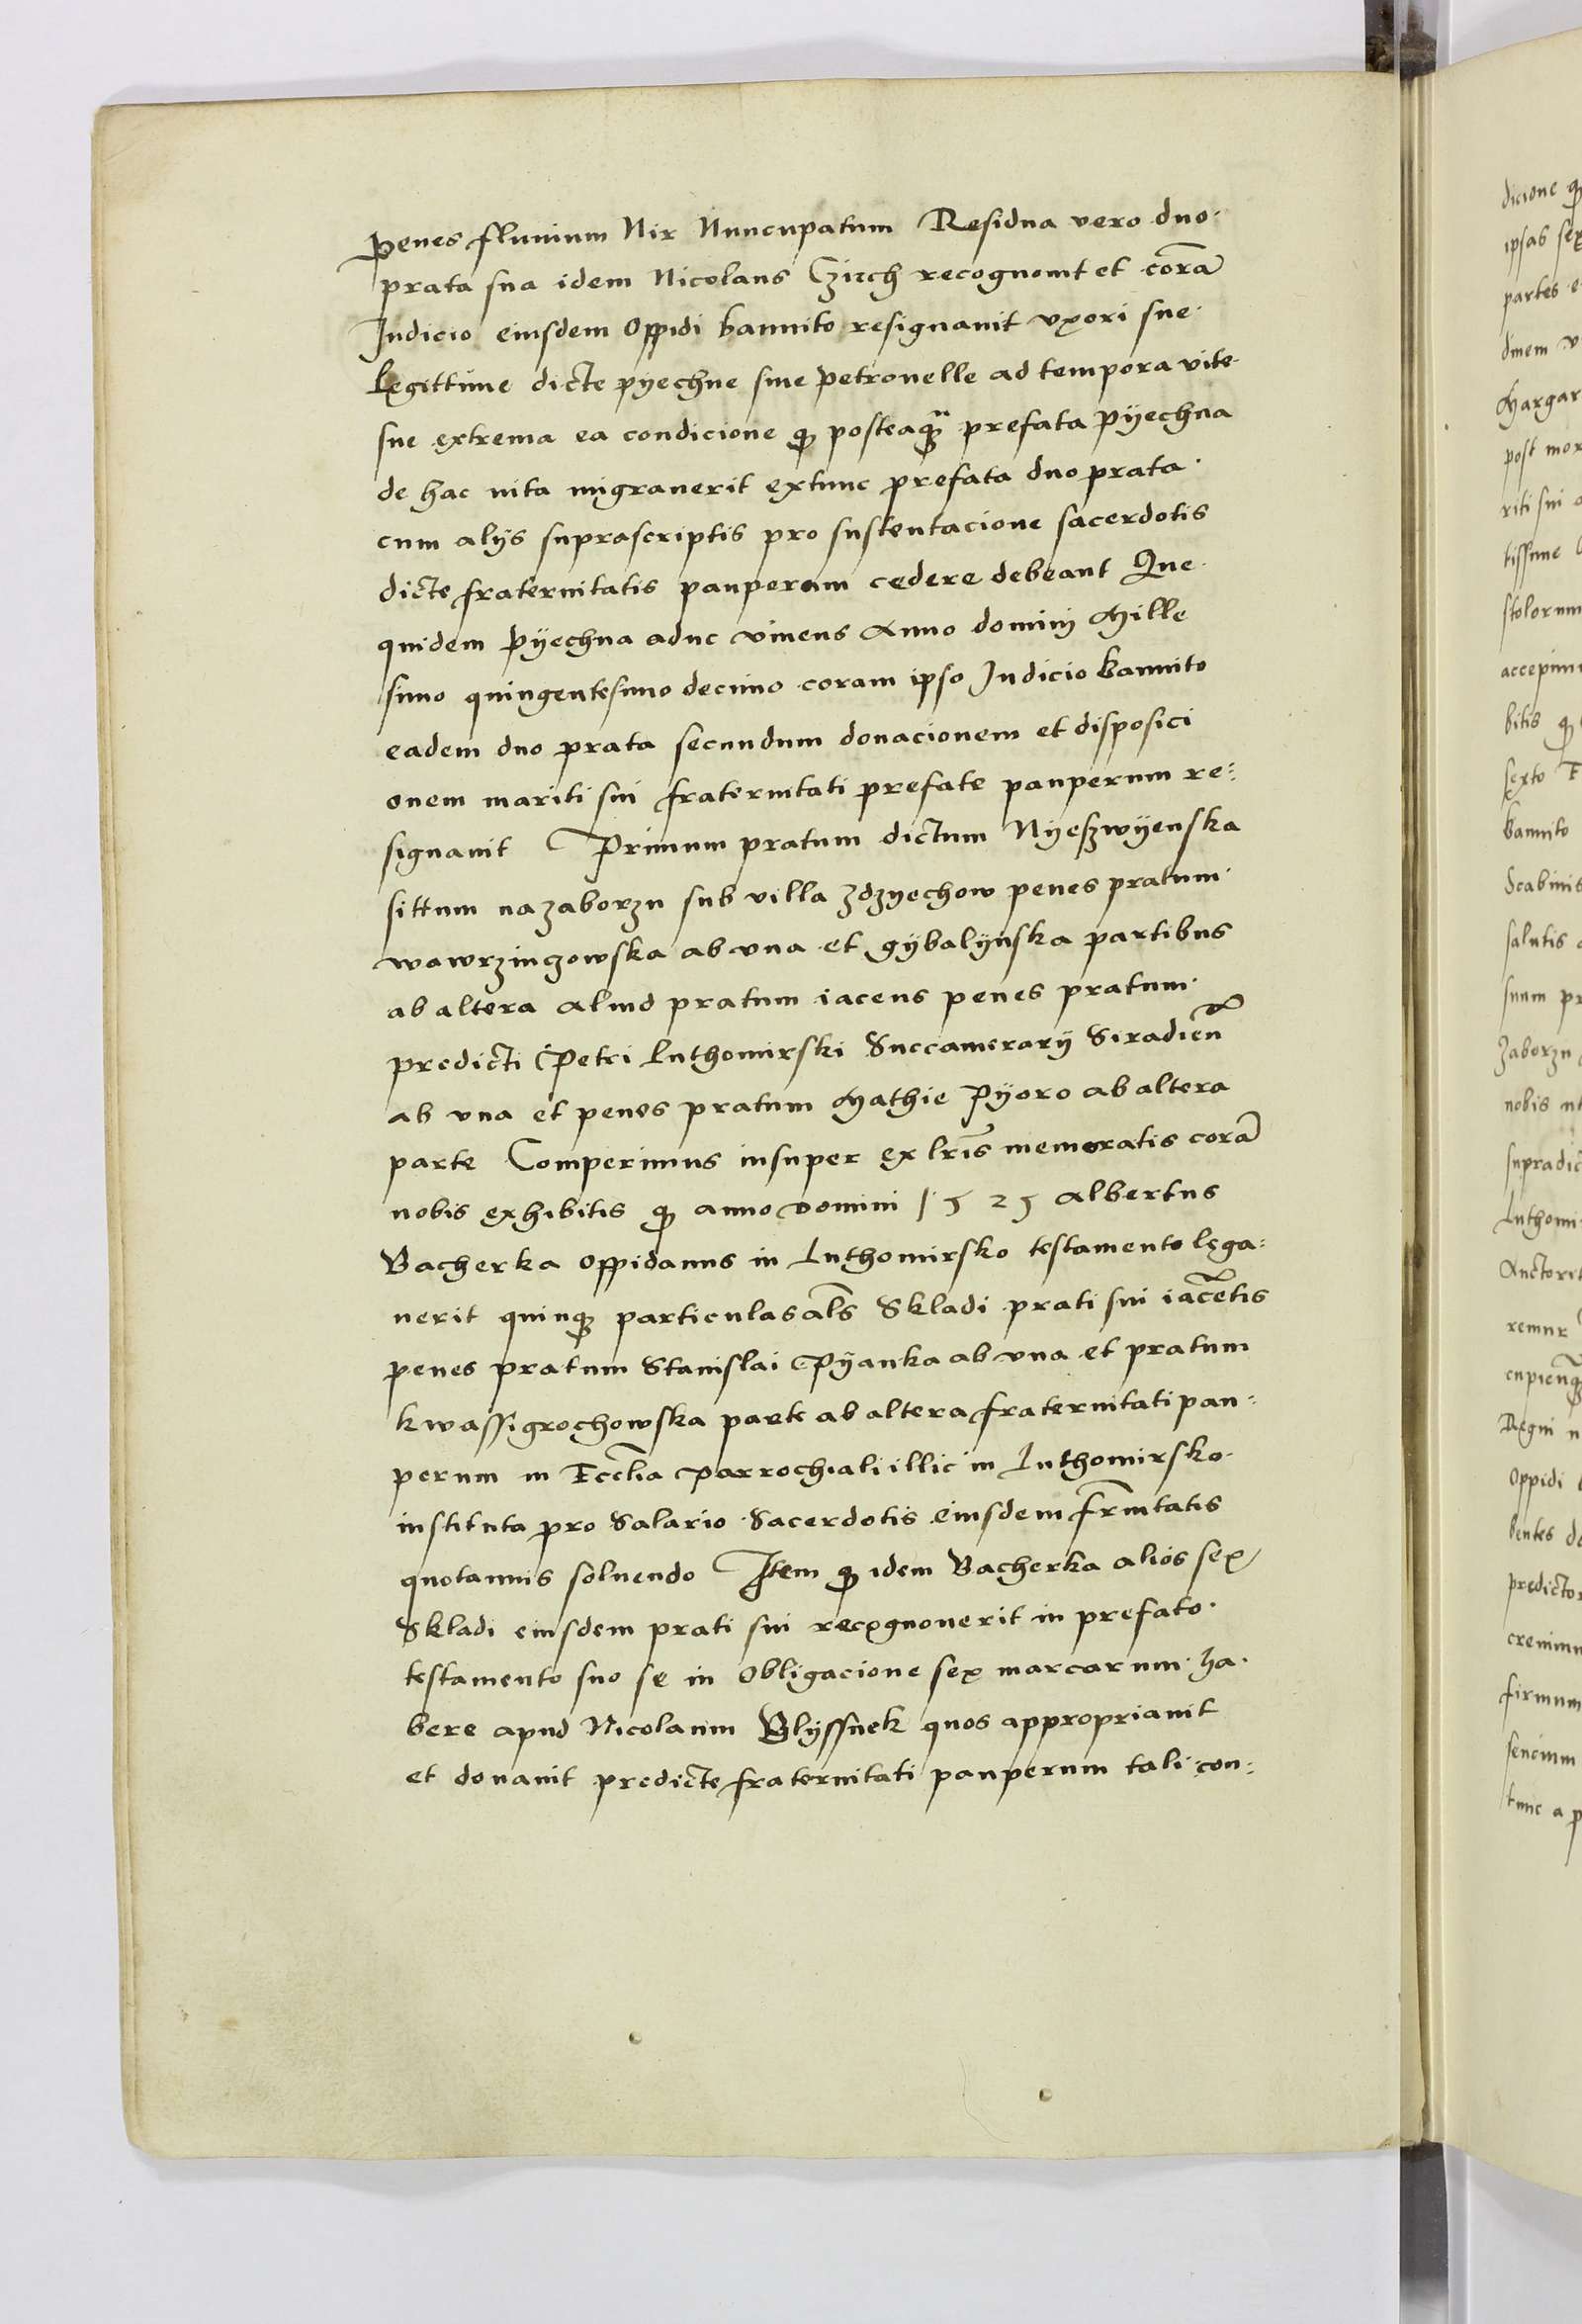 penes fluuium Nir Nuncupatum Residua vero duo
prata sua idem Nicolaus Czirch recognouit et corā
Iudicio eiusdem Oppidi bannito resignauit vxori sue
legittime dicte pyechne siue petronelle ad tempora vite
sue extrema ea condicione qꝫ posteaqꝫ prefata pÿechna
de hac uita migrauerit extunc prefata duo prata
cum alÿs suprascriptis pro sustentacione sacerdotis
dicte fraternitatis pauperum cedere debeant Que
quidem pÿechna aduc viuens Anno dominj Mille
simo quingentesimo decimo coram ipso Iudicio bannito
eadem duo prata secundum donacionem et disposici
onem mariti sui fraternitati prefate pauperum re:
signauit Primum pratum dictum Nÿeszwÿenska
sittum na zaborzu sub villa zdzyechow penes pratum
wawrzinczowska ab vna et gÿbalÿnska partibus
ab altera aliud pratum iacens penes pratum
predicti Petri luthomirski Succamerarÿ Siradień
ab vna et penes pratum Mathie Pÿoro ab altera
parte Comperimus insuper ex lrīs memoratis corā
nobis exhibitis qꝫ anno domini 1525 albertus
Bacherka oppidanus in luthomirsko testamento lega:
uerit quinqꝫ particulas als̄ Skladi prati sui iacētis
penes pratum Stanislai Pÿanka ab vna et pratum
kwassigrochowska parte ab altera fraternitati pau:
perum in Eccl̄ia parrochiali illic in luthomirsko
instituta pro Salario Sacerdotis eiusdem fr̄nitatis
quotannis soluendo Item qꝫ idem Bacherka alios sex
Skladi eiusdem prati sui recognouerit in prefato
testamento suo se in obligacione sex marcarum ha
bere apud Nicolaum Blÿssnek quos appropriauit
et donauit predicte fraternitati pauperum tali con: